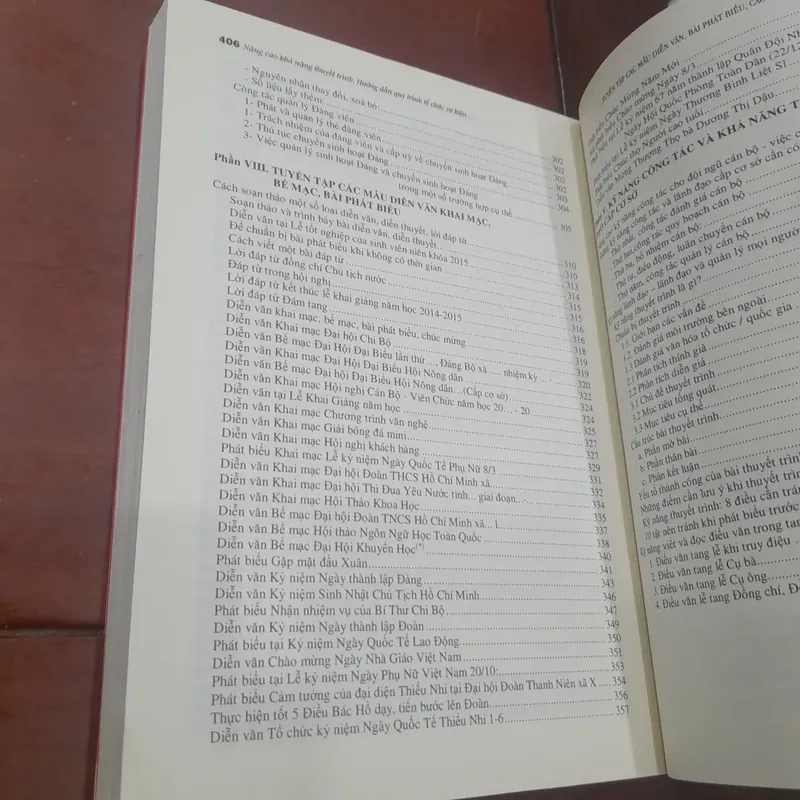 406 Nâng cao khả năng thuyết trình, Hướng dẫn quy trình tổ chức sự kiện...
- Nguyên nhân thay đổi, xoá bỏ:
- Số liệu lấy thêm:
Công tác quản lý Đảng viên
1- Phát và quản lý thẻ đảng viên
1- Trách nhiệm của đảng viên và cấp uỷ về chuyển sinh hoạt Đảng
2- Thủ tục chuyển sinh hoạt Đảng
3- Việc quản lý sinh hoạt Đảng và chuyển sinh hoạt Đảng
trong một số trường hợp cụ thể
302
302
302
302
303
304
305
Phần VIII. TUYỂN TẬP CÁC MẪU DIỄN VĂN KHAI MẠC,
BẾ MẠC, BÀI PHÁT BIỂU
Cách soạn thảo một số loại diễn văn, diễn thuyết, lời đáp từ
Soạn thảo và trình bày bài diễn văn, diễn thuyết
Diễn văn tại Lễ tốt nghiệp của sinh viên niên khóa 2015
Để chuẩn bị bài phát biểu khi không có thời gian
Cách viết một bài đáp từ
Lời đáp từ đồng chí Chủ tịch nước
Đáp từ trong hội nghị
Lời đáp từ kết thúc lễ khai giảng năm học 2014-2015
Lời đáp từ Đám tang
Diễn văn khai mạc, bế mạc, bài phát biểu, chúc mừng
Diễn văn Khai mạc Đại hội Chi Bộ
Diễn văn Bế mạc Đại Hội Đại Biểu lần thứ ..., Đảng Bộ xã ..., nhiệm kỳ ... -
Diễn văn Khai mạc Đại Hội Đại Biểu Hội Nông dân
Diễn văn Bế mạc Đại hội Đại Biểu Hội Nông dân... (Cấp cơ sở)
Diễn văn Khai mạc Hội nghị Cán Bộ - Viên Chức năm học 20... - 20...
Diễn văn tại Lễ Khai Giảng năm học
Diễn văn Khai mạc Chương trình văn nghệ
Diễn văn Khai mạc Giải bóng đá mini
Diễn văn Khai mạc Hội nghị khách hàng
Phát biểu Khai mạc Lễ kỷ niệm Ngày Quốc Tế Phụ Nữ 8/3
Diễn văn Khai mạc Đại hội Đoàn THCS Hồ Chí Minh xã..
Diễn văn Khai mạc Đại hội Thi Đua Yêu Nước tỉnh... giai đoạn...-...
Diễn văn Khai mạc Hội Thảo Khoa Học
Diễn văn Bế mạc Đại hội Đoàn TNCS Hồ Chí Minh xã... l
Diễn văn Bế mạc Hội thảo Ngôn Ngữ Học Toàn Quốc
Diễn văn Bế mạc Đại Hội Khuyến Học(*)
Phát biểu Gặp mặt đầu Xuân
Diễn văn Kỷ niệm Ngày thành lập Đảng
Diễn văn Kỷ niệm Sinh Nhật Chủ Tịch Hồ Chí Minh
Phát biểu Nhận nhiệm vụ của Bí Thư Chi Bộ
Diễn văn Kỷ niệm Ngày thành lập Đoàn
Phát biểu tại Kỷ niệm Ngày Quốc Tế Lao Động
Diễn văn Chào mừng Ngày Nhà Giáo Việt Nam
Phát biểu tại Lễ kỷ niệm Ngày Phụ Nữ Việt Nam 20/10:
Phát biểu Cảm tưởng của đại diện Thiếu Nhi tại Đại hội Đoàn Thanh Niên xã X
Thực hiện tốt 5 Điều Bác Hồ dạy, tiến bước lên Đoàn
Diễn văn Tổ chức kỷ niệm Ngày Quốc Tế Thiếu Nhi 1-6
310
310
313
314
315
315
316
318
319
319
320
322
324
324
325
327
327
329
331
332
334
335
337
338
340
341
343
346
347
349
350
351
353
354
356
357
TUYỂN TẬP CÁC MẪU DIỄN VĂN, BÀI PHÁT BIỂU,
Chúc Mừng Năm Mới
Chào mừng Ngày 8/3
Lễ kỷ niệm 67 năm thành lập Quân Đội
Ngày Hội Quốc Phòng Toàn Dân (22/12
Lễ kỷ niệm Ngày Thương Binh Liệt Sĩ
Chúc thọ Người cao tuổi
Mừng Thượng Thọ bà Dương Thị Dậu
KỸ NĂNG CÔNG TÁC VÀ KHẢ NĂNG
kỹ năng công tác cho đội ngũ cán bộ - việc
CẤP CƠ SỞ
Kỹ năng công tác và lãnh đạo cấp cơ sở cần có
Thứ nhất, công tác đánh giá cán bộ
Thứ hai, công tác quy hoạch cán bộ
Thứ ba, bố nhiệm cán bộ
Thứ tư, điều động, luân chuyển cán bộ
Thứ năm, công tác quản lý cán bộ
Kỹ năng lãnh đạo - lãnh đạo và quản lý mọi người
Kỹ năng thuyết trình là gì?
Chuẩn bị thuyết trình
1.1 Giới hạn các vấn đề
1.2 Đánh giá môi trường bên ngoài
1.3 Đánh giá văn hóa tổ chức / quốc gia
2.1 Phân tích thính giả
2.2 Phân tích diễn giả
3.1 Chủ đề thuyết trình
3.2 Mục tiêu tổng quát
3.3 Mục tiêu cụ thể
Cấu trúc bài thuyết trình
a. Phần mở bài
b. Phần thân bài
c. Phần kết luận
Yếu tố thành công của bài thuyết trình
Những điểm cần lưu ý khi thuyết trình
Kỹ năng thuyết trình: 8 điều cần tránh
10 tật nên tránh khi phát biểu trước
Kỹ năng viết và đọc điếu văn trong tang
1. Điếu văn tang lễ khi truy điệu
2. Điếu văn tang lễ Cụ bà
3. Điếu văn tang lễ Cụ ông
4. Điếu văn lễ tang Đồng chí,